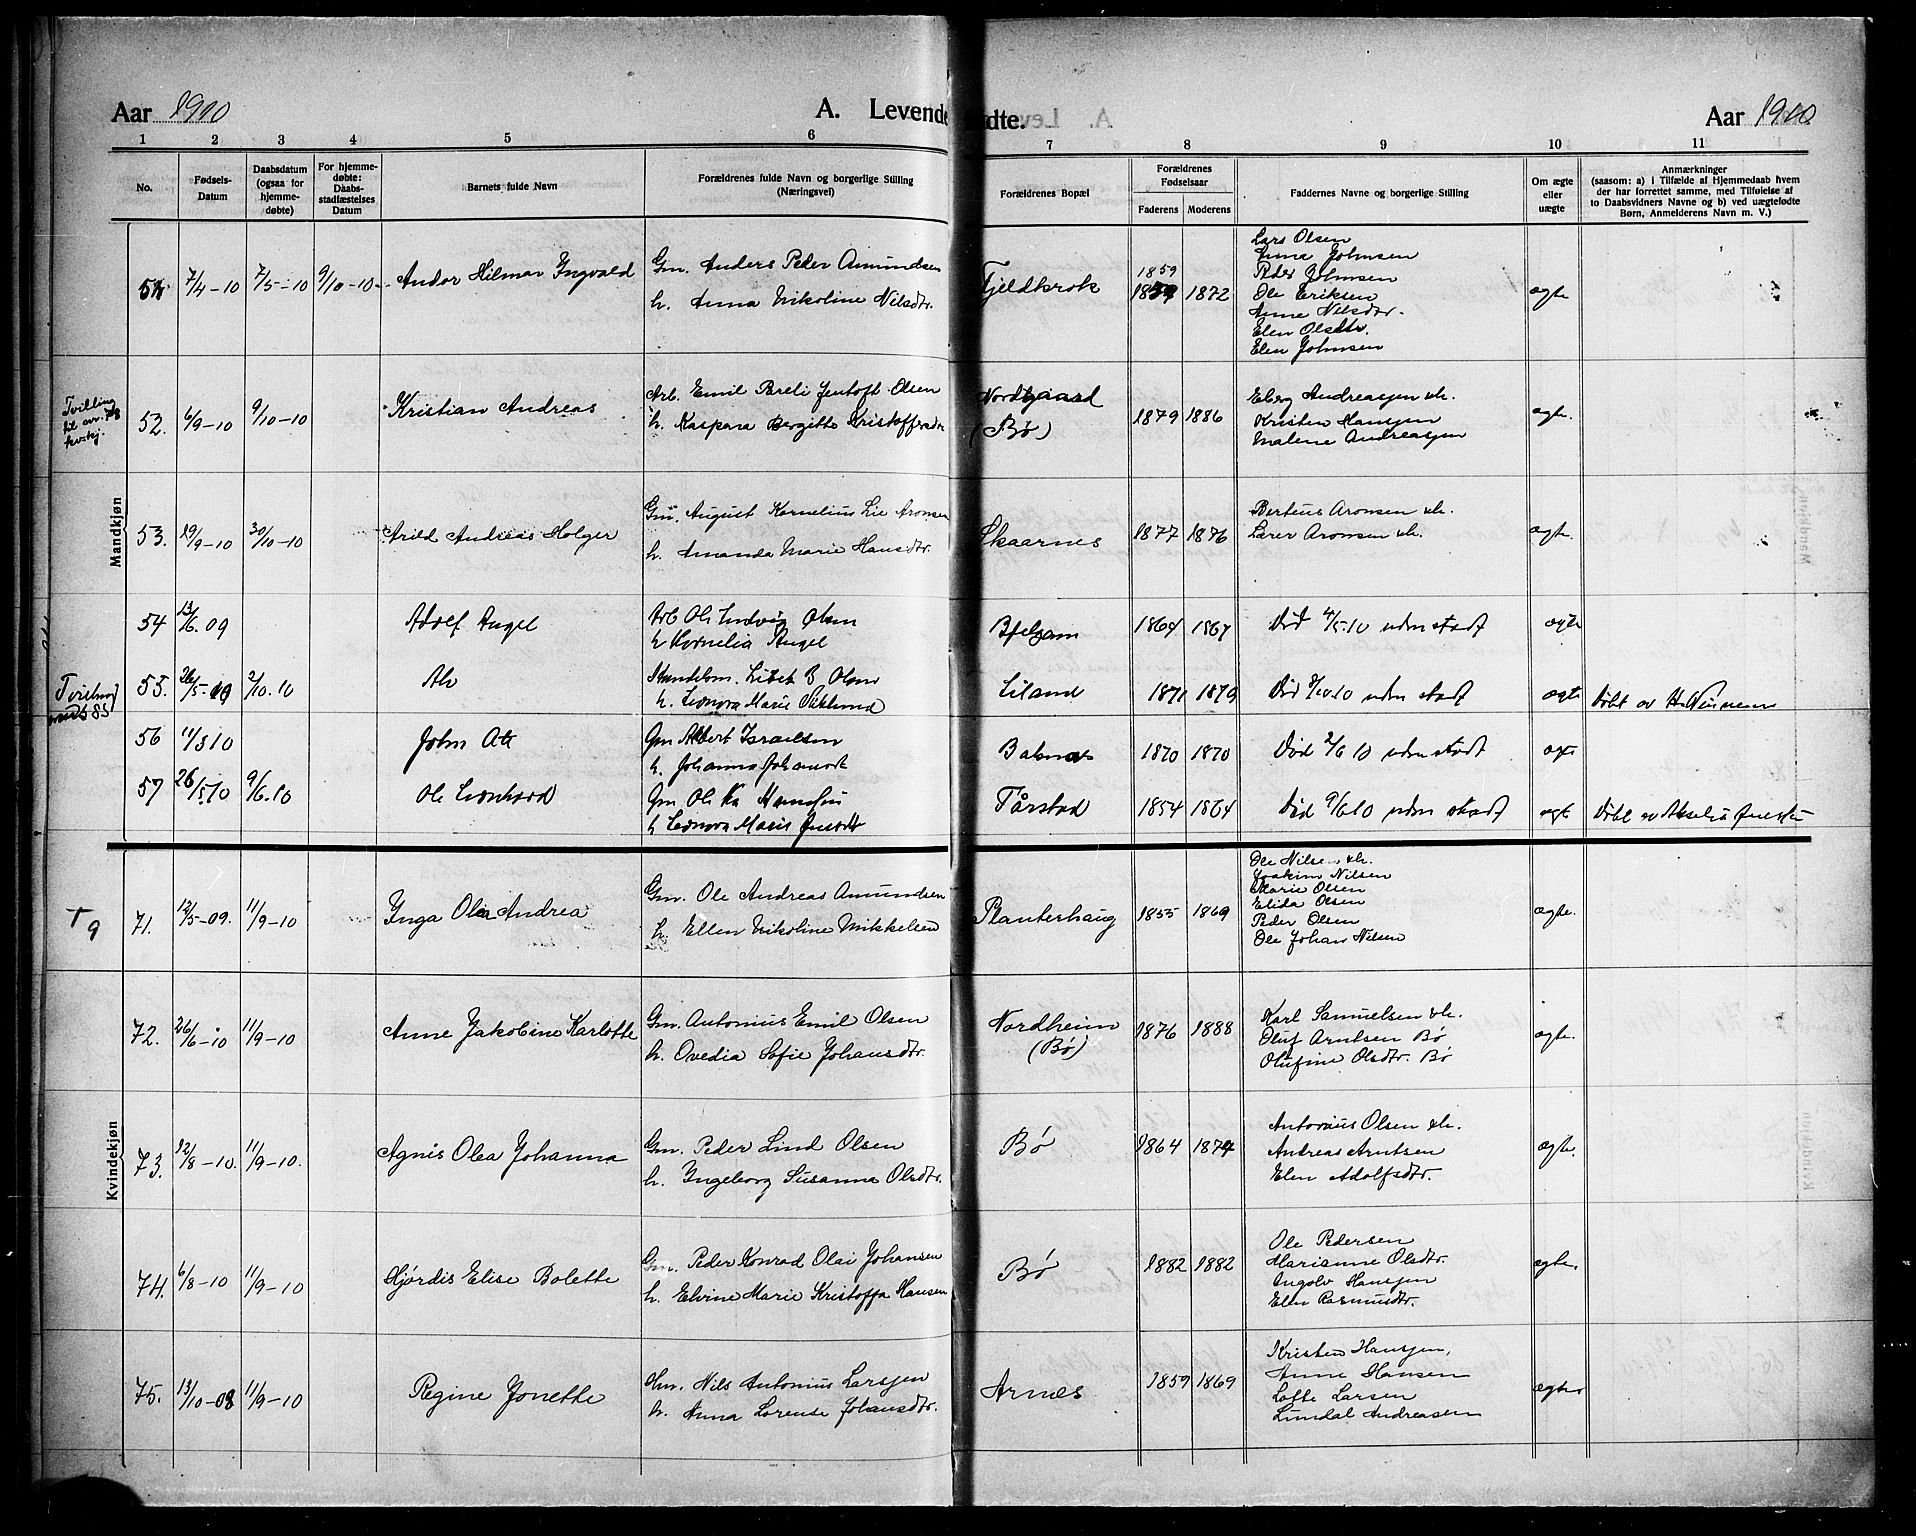 Aar 1910
A. Levende
dte.
Aar 1910
1 2 3 4 5 6 7 8 9 10 11
No.
Fødsels-
Datum
Daabsdatum
(ogsaa for
hjemme-
døbte)
For hjemme-
døbte:
Daabs-
stadfæstelses
Datum
Barnets fulde Navn
Forældrenes fulde Navn og borgerlige Stilling
(Næringsvei)
Forældrenes Bopæl
Forældrenes
Fødselsaar
Faderens Moderens
Faddernes Navne og borgerlige Stilling
Om ægte
eller
uægte
Anmærkninger
(saasom: a) i Tilfælde af Hjemmedaab hvem
der har forrettet samme, med Tilføielse af
to Daabsvidners Navne og b) ved uægtefødte
Børn, Anmelderens Navn m. V.)
Mandkjøn
51. 7/4-10 7/5-10 9/10-10 Andor Hilmar Ingvald
Gm. Anders Peder Amundsen
h. Anna Nikoline Nilsdtr.
Fjeldkrok
1859
1872
Lars Olsen
Anne Johnsen
Peder Johnsen
Ole Eriksen
Anne Nilsdtr.
Elen Olsdtr.
Elen Johnsen
ægte
Tvilling
52. 6/9-10 9/10-10 Kristian Andreas
Arb. Emil Breli Jentoft Olsen
h. Kaspara Bergitte Kristoffersdtr
Nordgaard
(Bø)
1879 1886
Eberg Andreassen &h.
Kristen Hansen
Malene Andreassen
ægte.
53. 19/9-10 30/10-10 Arild Andreas Holger
Gm. August Kornelius Lie Aronsen
h. Amanda Marie Hansdtr.
Skaarnes
1877 1876
Berteus Aronsen &h.
Larer Aronsen &h.
ægte.
54 13/6.09 Adolf Angel
Arb Ole Ludvig Olsen
h Kornelia Angel
1864 1867
Død 4/5-10 uden stadf
ægte
Tvilling
55. 26/5.10 2/10.10
h. Leonora Marie
Liland
1871 1879
Død uden stadf
ægte
Døbt av
56 11/5 10 John
Gm Albert Israelsen
h. Johanna
1870 1870
Død 2/6 10 uden stadf
ægte
57 26/5 10 9/6.10 Ole Leonhard
Gm Ole
h Leonora Marie Jensdtr
Tårstad
1854 1864
Død 9/6 10 uden stadf
ægte
Døbt av
Kvindekjøn
71. 12/5-09. 11/9-10 Inga Olea Andrea
Gm. Ole Andreas Amundsen
h. Ellen Nikoline Mikkelsen
Planterhaug
1855 1869
Ole Nilsen &h.
Joakim Nilsen
Marie Olsen
Elida Olsen
Peder Olsen
Ole Johan Nilsen
ægte.
72. 26/6-10 11/9-10 Anne Jakobine Karlotte
Gm. Antonius Emil Olsen
h. Ovedia Sofie Johansdtr.
Nordheim
(Bø)
1876 1888
Karl Samuelsen &h.
Oluf Arntsen Bø
Olufine Olsdtr. Bø
ægte.
73. 12/8-10. 11/9-10. Agnis Olea Johanna
Gm. Peder Lind Olsen
h. Ingeborg Susanna Olsdtr.
Bø
1864 1874
Antonius Olsen &h.
Andreas Arntsen
Elen Adolfsdtr.
ægte.
74. 6/8-10 11/9-10 Hjørdis Elise Bolette
Gm. Peder Konrad Olai Johansen
h. Elvine Marie Kristoffa Hansen
Bø
1882 1882
Ole Pedersen
Marianne Olsdtr.
Ingolv Hansen
Elen Rasmusdtr.
ægte.
75. 13/10-08 11/9-10 Regine Jonette
Gm. Nils Antonius Larssen
h. Anna Lorense Johansdtr.
Arnes
1859 1869
Kristen Hansen,
Anne Hansen
Lotte Larsen
Lundal Andreasen
ægte